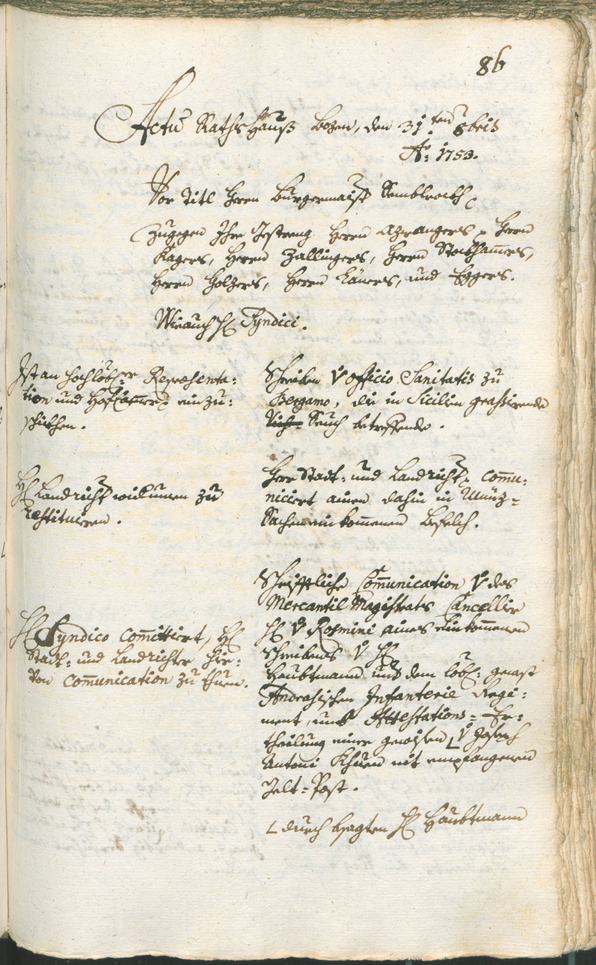 86
Actu Raths Hauß Bozen, den 31ten 8bris
Aō: 1753.
Vor Titl Herrn Burgermaistr
Zugegen Ihro Gestreng Herrn Azwangers, Herrn
Kagers, Herrn Zallingers, Herrn Stockhamers,
Herrn Holzers, Herrn und Eggers.
Wie auch H: Syndici.
Ist an hochlöbe Repraesenta:
tion und einzu:
schikhen.
Schreiben V Officio Sanitatis zu
Bergamo, die in Sicilien grassirende
Seuch betreffende.
H: Landricht widrumen zu
restituiren.
Herr Statt- und Landricht, commu:
niciert ainen dahin in Münz-
Sachen einkommenen Befelch.
H: Syndico committiert, H:
Statt- und Landrichter hier:
von communication zu thuen.
Schrifftliche Communication V des
Mercantil Magistrats Cancellier
H: V Rosmini aines einkommenen
Schreibens V H:
Haubtmann und dem lobl:
Andrasischen Infanterie Regi:
ment, umb Attestations- Er:
theilung einer gewissen ⌊ V Joseph
Antoni Khuen mit empfangenen
Gelt-Post.
⌊ durch besagten H: Haubtmann